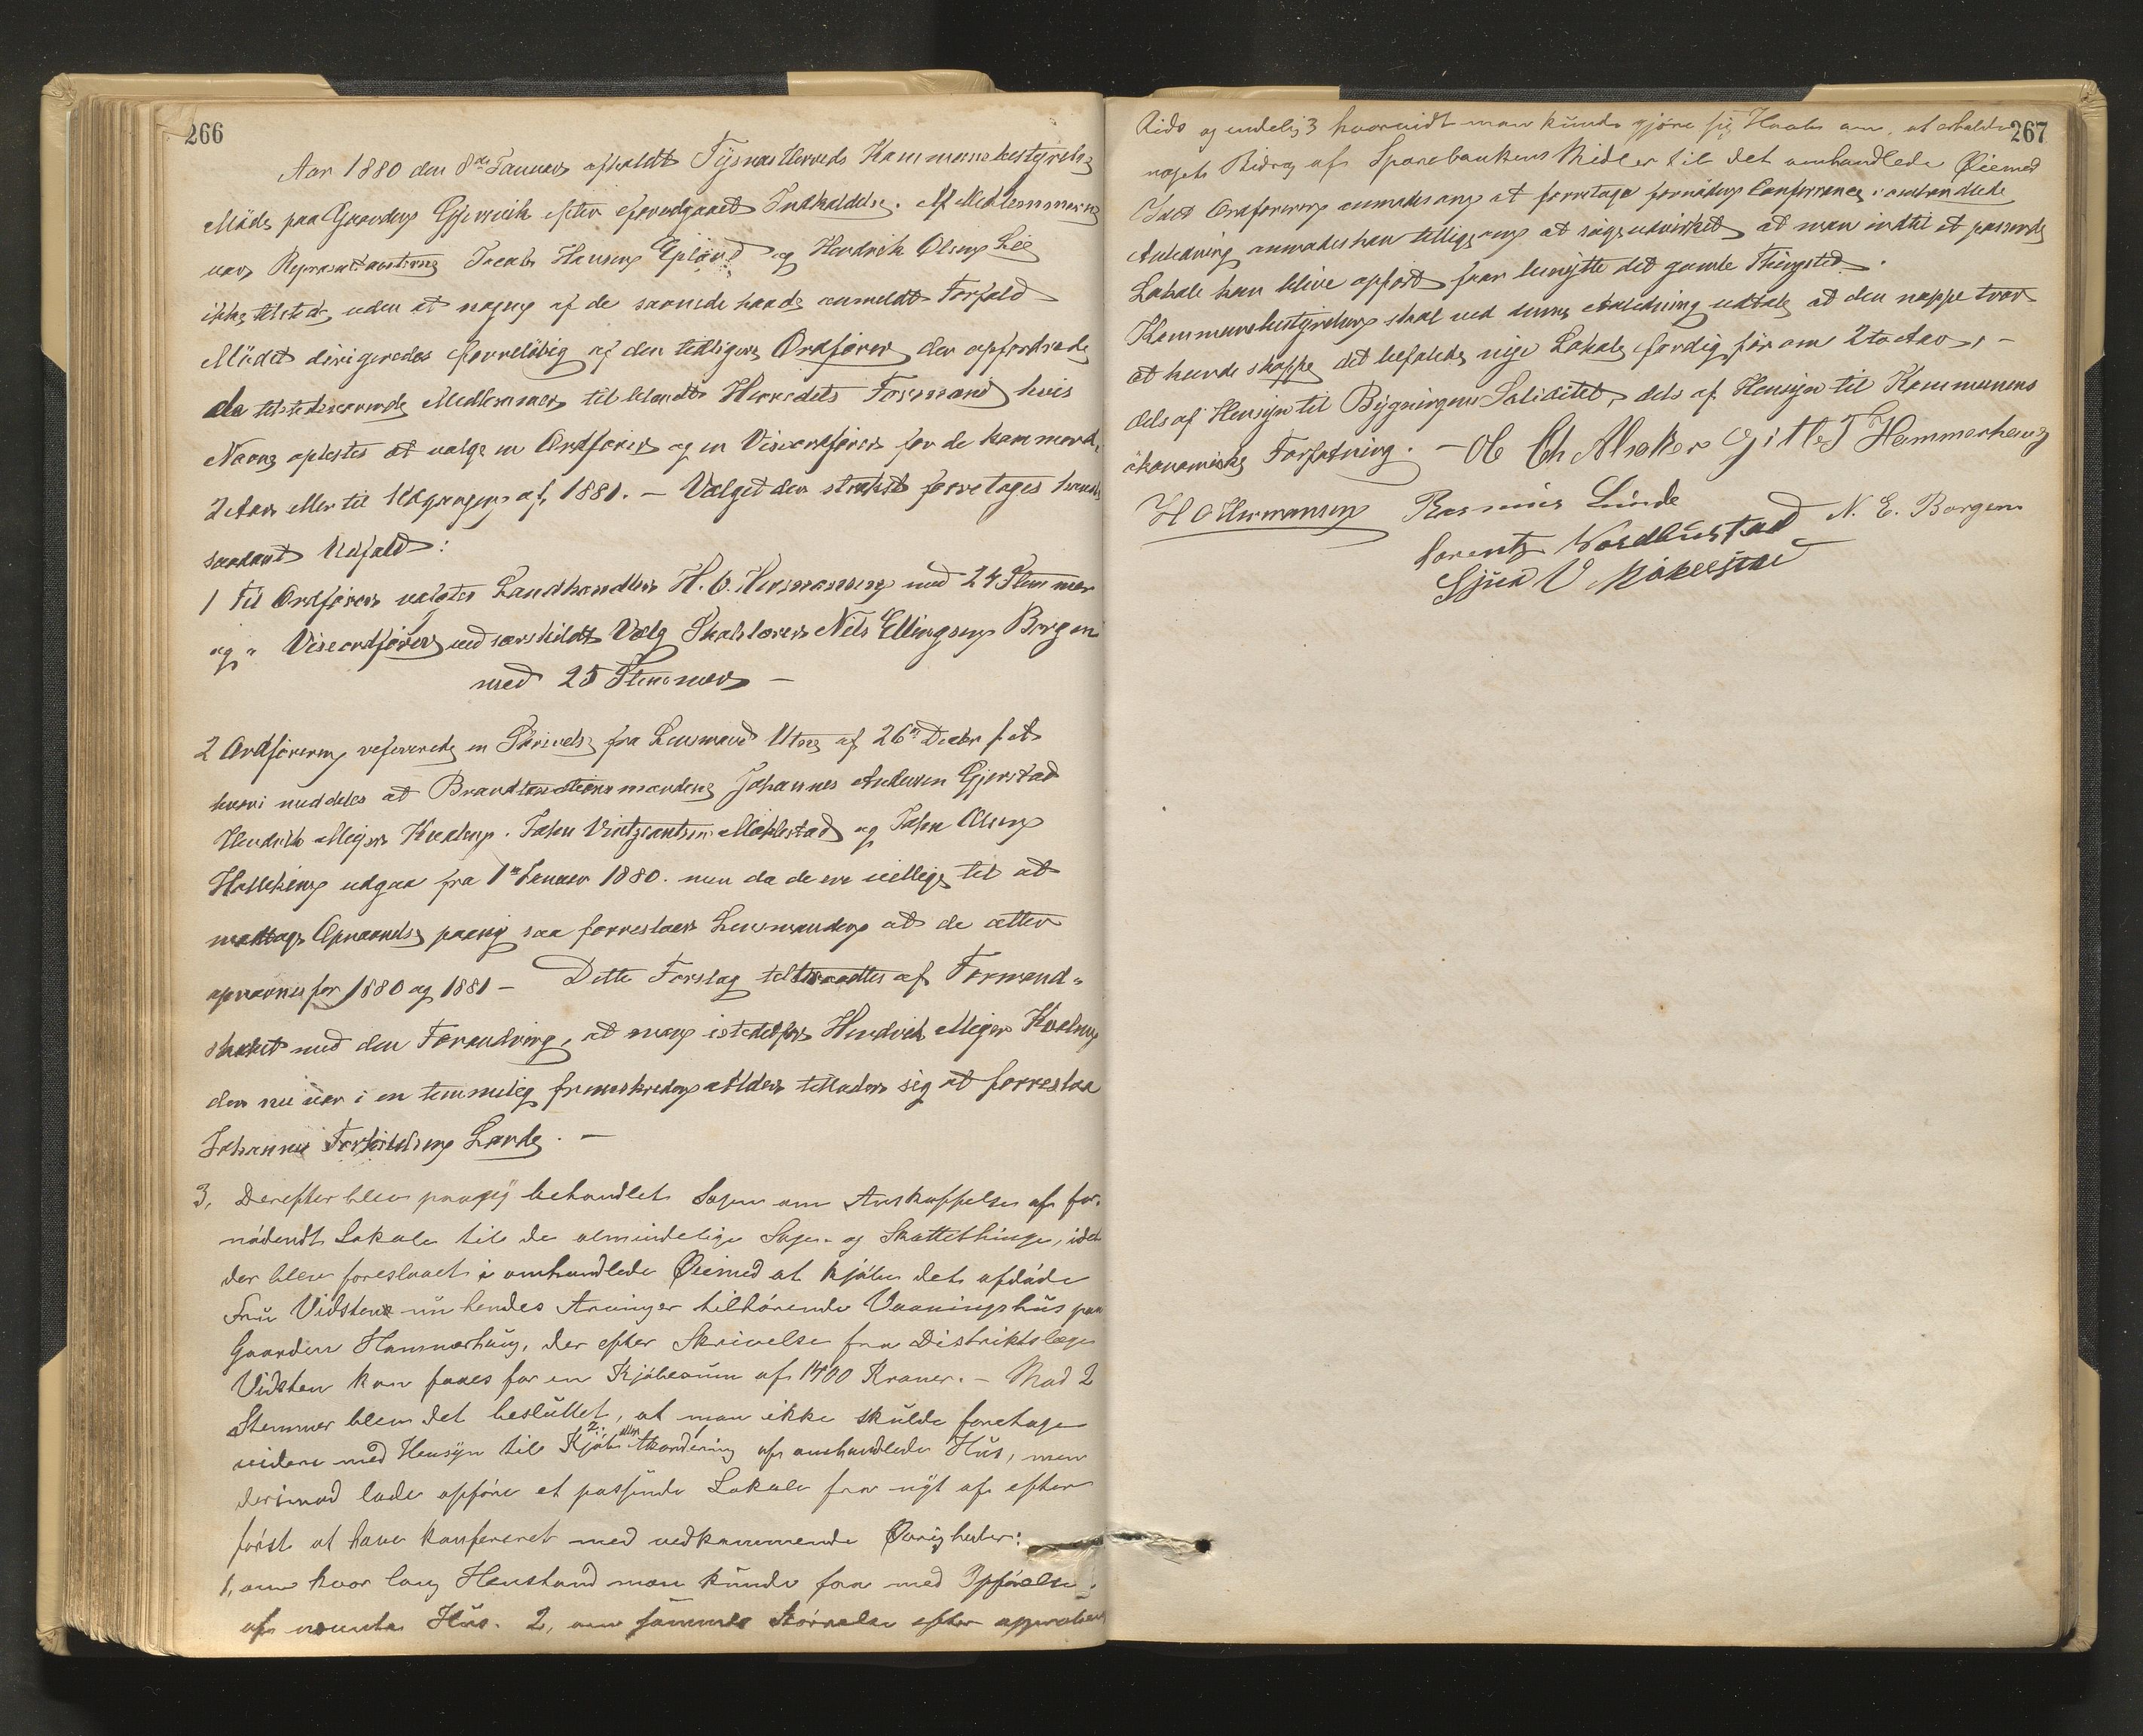 266
Aar 1880 den 8de Januar afholdt Tysnæs Herreds Kommunebestyrelse
Møde paa Gaarden Gjerevik efter foregaaet Indkaldelse. Af Medlemmerne
var Repræsentanterne Jacob Hansen Epland og Hendrik Olsen Lie
ikke tilstede, uden at nogen af de savnede havde anmeldt Forfald
Mödet dirigeredes foreløbig af den tidligere Ordfører der opfordrede
de tilstedeværende Medlemmer tilligemed Herredets Formænd hvis
Navne oplæstes at vælge en Ordfører og en Viseordfører for de kommende
2 Aar eller til Udgangen af 1881. – Valget der strakst foretoges havde
saadant Udfald:
1 Til Ordfører valgtes Landhandler H. O. Hermansen med 24 Stemmer
og " Viseordfører ved særskildt Valg Skolelærer Nils Ellingsen Borgen
med 25 Stemmer –
2 Ordføreren refererede en Skrivelse fra Lensmand Utne af 26de Decbr f. A.
hvori meddeles at Brandtaxtionsmændene Johannes Andersen Gjerstad
Hendrik Meyer Kvalen. John Vintzentsen Møklestad og John Olsen
Hallekien udgaar fra 1ste Januar 1880. men da de ere villige til at
modtage Opnævnelse paany saa forreslaar Lensmanden at de atter
opnævnes for 1880 og 1881 – Dette Forslag tiltraadtes af Formand-
skabet med den Forandring, at man istedetfor Hendrik Meyer Kvalen
der nu var i en temmelig fremskreden Alder tillader sig at forreslaa
Johannes Torkildsen Lande. –
3, Derefter blev paany behandlet Sagen om Anskaffelse af for-
nödendt Lokale til de almindelige Sage- og Skattethinge, idet
der blev foreslaaet i omhandlede Øiemed at kjöbe det afdöde
Frü Vidsten nü hendes Arvinger tilhörende Vaaningshüs paa
Gaarden Hammerhaug, der efter Skrivelse fra Distriktslæge
Vidsten kan faaes for en Kjöbesum af 1400 Kroner. – Mod 2
Stemmer blev det beslüttet, at man ikke skülde foretage
videre med Hensyn til Kjöb eller Akordering af omhandlede Hüs, men
derimod lade opföre et passende Lokale fra nyt af efter
först at have konfereret med vedkommende Øvrigheder:
1, om hvor lang Henstand man künde faa med Opförelse
af nævnte Hüs. 2, om sammes Størrelse efter approberet
267
Rids og endelig 3 hvorvidt man künde gjöre sig Haab om, at erholde
noget Bidrag af Sparebankens Midler til det omhandlede Øiemed
Idet Ordføreren anmodes om at forretage fornøden Conferrence i omhandlede
Anledning anmodes han tillige om at søge udvirket at man indtil et passende
Lokale kan blive opført faar benytte det gamle Thingsted.
Kommunebestyrelsen skal ved denne Anledning udtale at den neppe tror
at kunde skaffe det befalede nye Lokale færdig før om 2 to Aar, –
dels af Hensyn til Bygningens Soliditet, dels af Hensyn til Kommunens
økonomiske Forfatning. – Ob Ch Alsaker Gitle T Hammerhaug
H O Hermansen Rasmus Lünde
Lorentz Nordbüstad N. E. Borgen
Sjur V Møkelstad